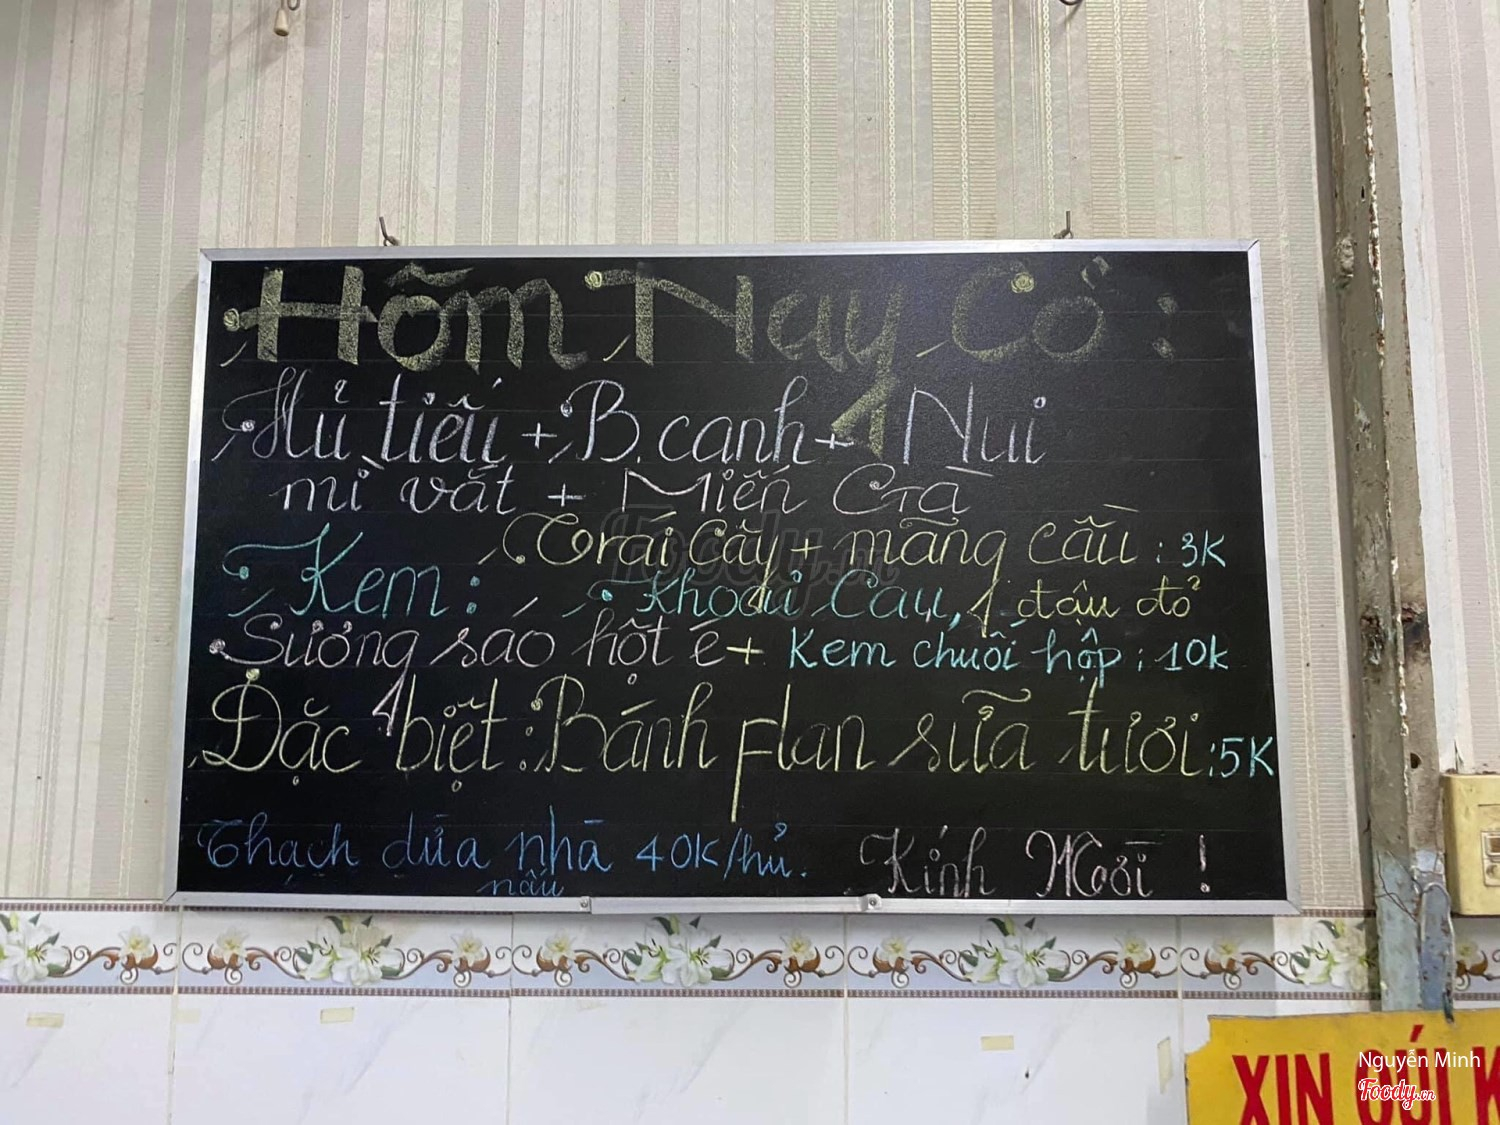 Hôm Nay Có :
Hủ tiếu + B. canh + Nui
mì vắt + Miến Gà
Trái cây + mãng cầu : 3K
Kem : Khoai Cau, đậu đỏ
Sương sáo hột é + Kem chuối hộp : 10k
Đặc biệt : Bánh flan sữa tươi : 5K
Thạch dừa nhà 40K/hủ. Kính Mời !
nấu
XIN GỬI K
Nguyễn Minh
Foody.cn
Foody.vn